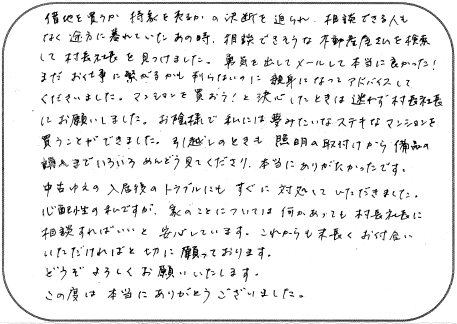 借地を買うか 持家を売るか の決断を迫られ、相談できる人も
なく途方に暮れていたあの時、相談できそうな不動産屋さんを検索
して村長社長を見つけました。勇気を出してメールして本当に良かった!
まだお仕事に繋がるかも判らないのに親身になってアドバイスして
くださいました。マンションを買おう!と決心したときは迷わず村長社長
にお願いしました。お陰様で私には夢みたいなステキなマンションを
買うことができました。引越しのときも照明の取付けから備品の
購入までいろいろめんどう見てくださり、本当にありがたかったです。
中古ゆえの入居後のトラブルにもすぐに対処していただきました。
心配性の私ですが、家のことについては何かあっても村長社長に
相談すればいいと安心しています。これからも末長くお付合い
いただければと切に願っております。
どうぞよろしくお願いいたします。
この度は本当にありがとうございました。